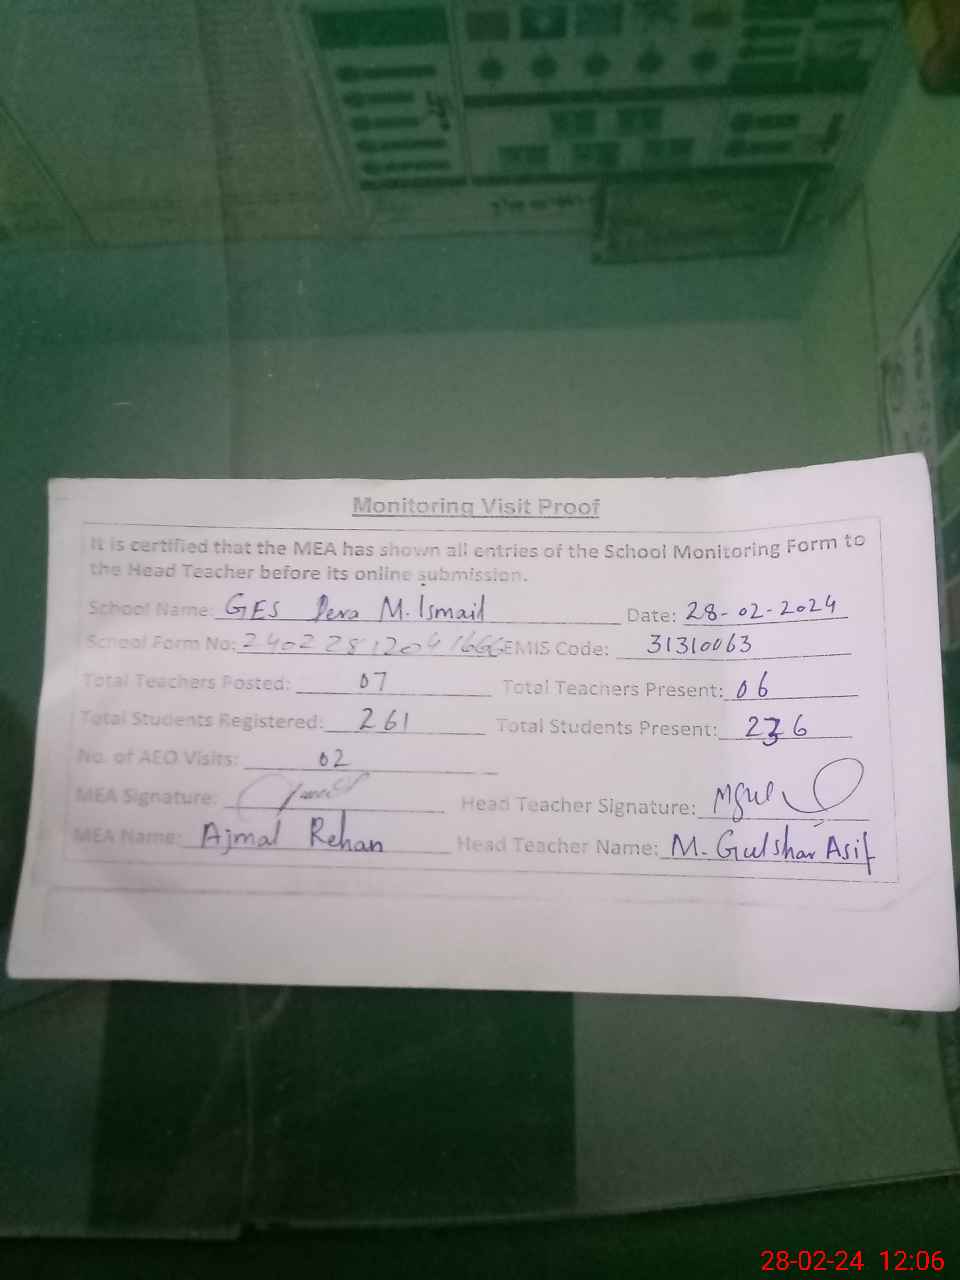 Monitoring Visit Proof
It is certified that the MEA has shown all entries of the School Monitoring Form to
the Head Teacher before its online submission.
School Name: GES Dera M. Ismail Date: 28-02-2024
School Form No: 2402281204166 EMIS Code: 31310063
Total Teachers Posted: 07 Total Teachers Present: 06
Total Students Registered: 261 Total Students Present: 236
No. of AEO Visits: 02
MEA Signature: Head Teacher Signature:
MEA Name: Ajmal Rehan Head Teacher Name: M. Gulshar Asif
28-02-24 12:06